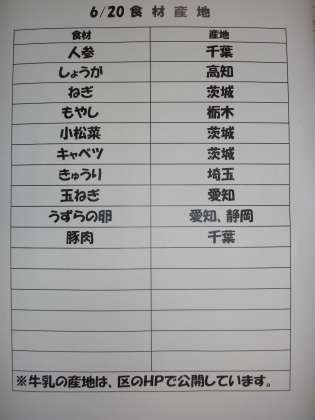 6/20 食 材 産 地
食材 産地
人参 千葉
しょうが 高知
ねぎ 茨城
もやし 栃木
小松菜 茨城
キャベツ 茨城
きゅうり 埼玉
玉ねぎ 愛知
うずらの卵 愛知、静岡
豚肉 千葉
※牛乳の産地は、区のHPで公開しています。